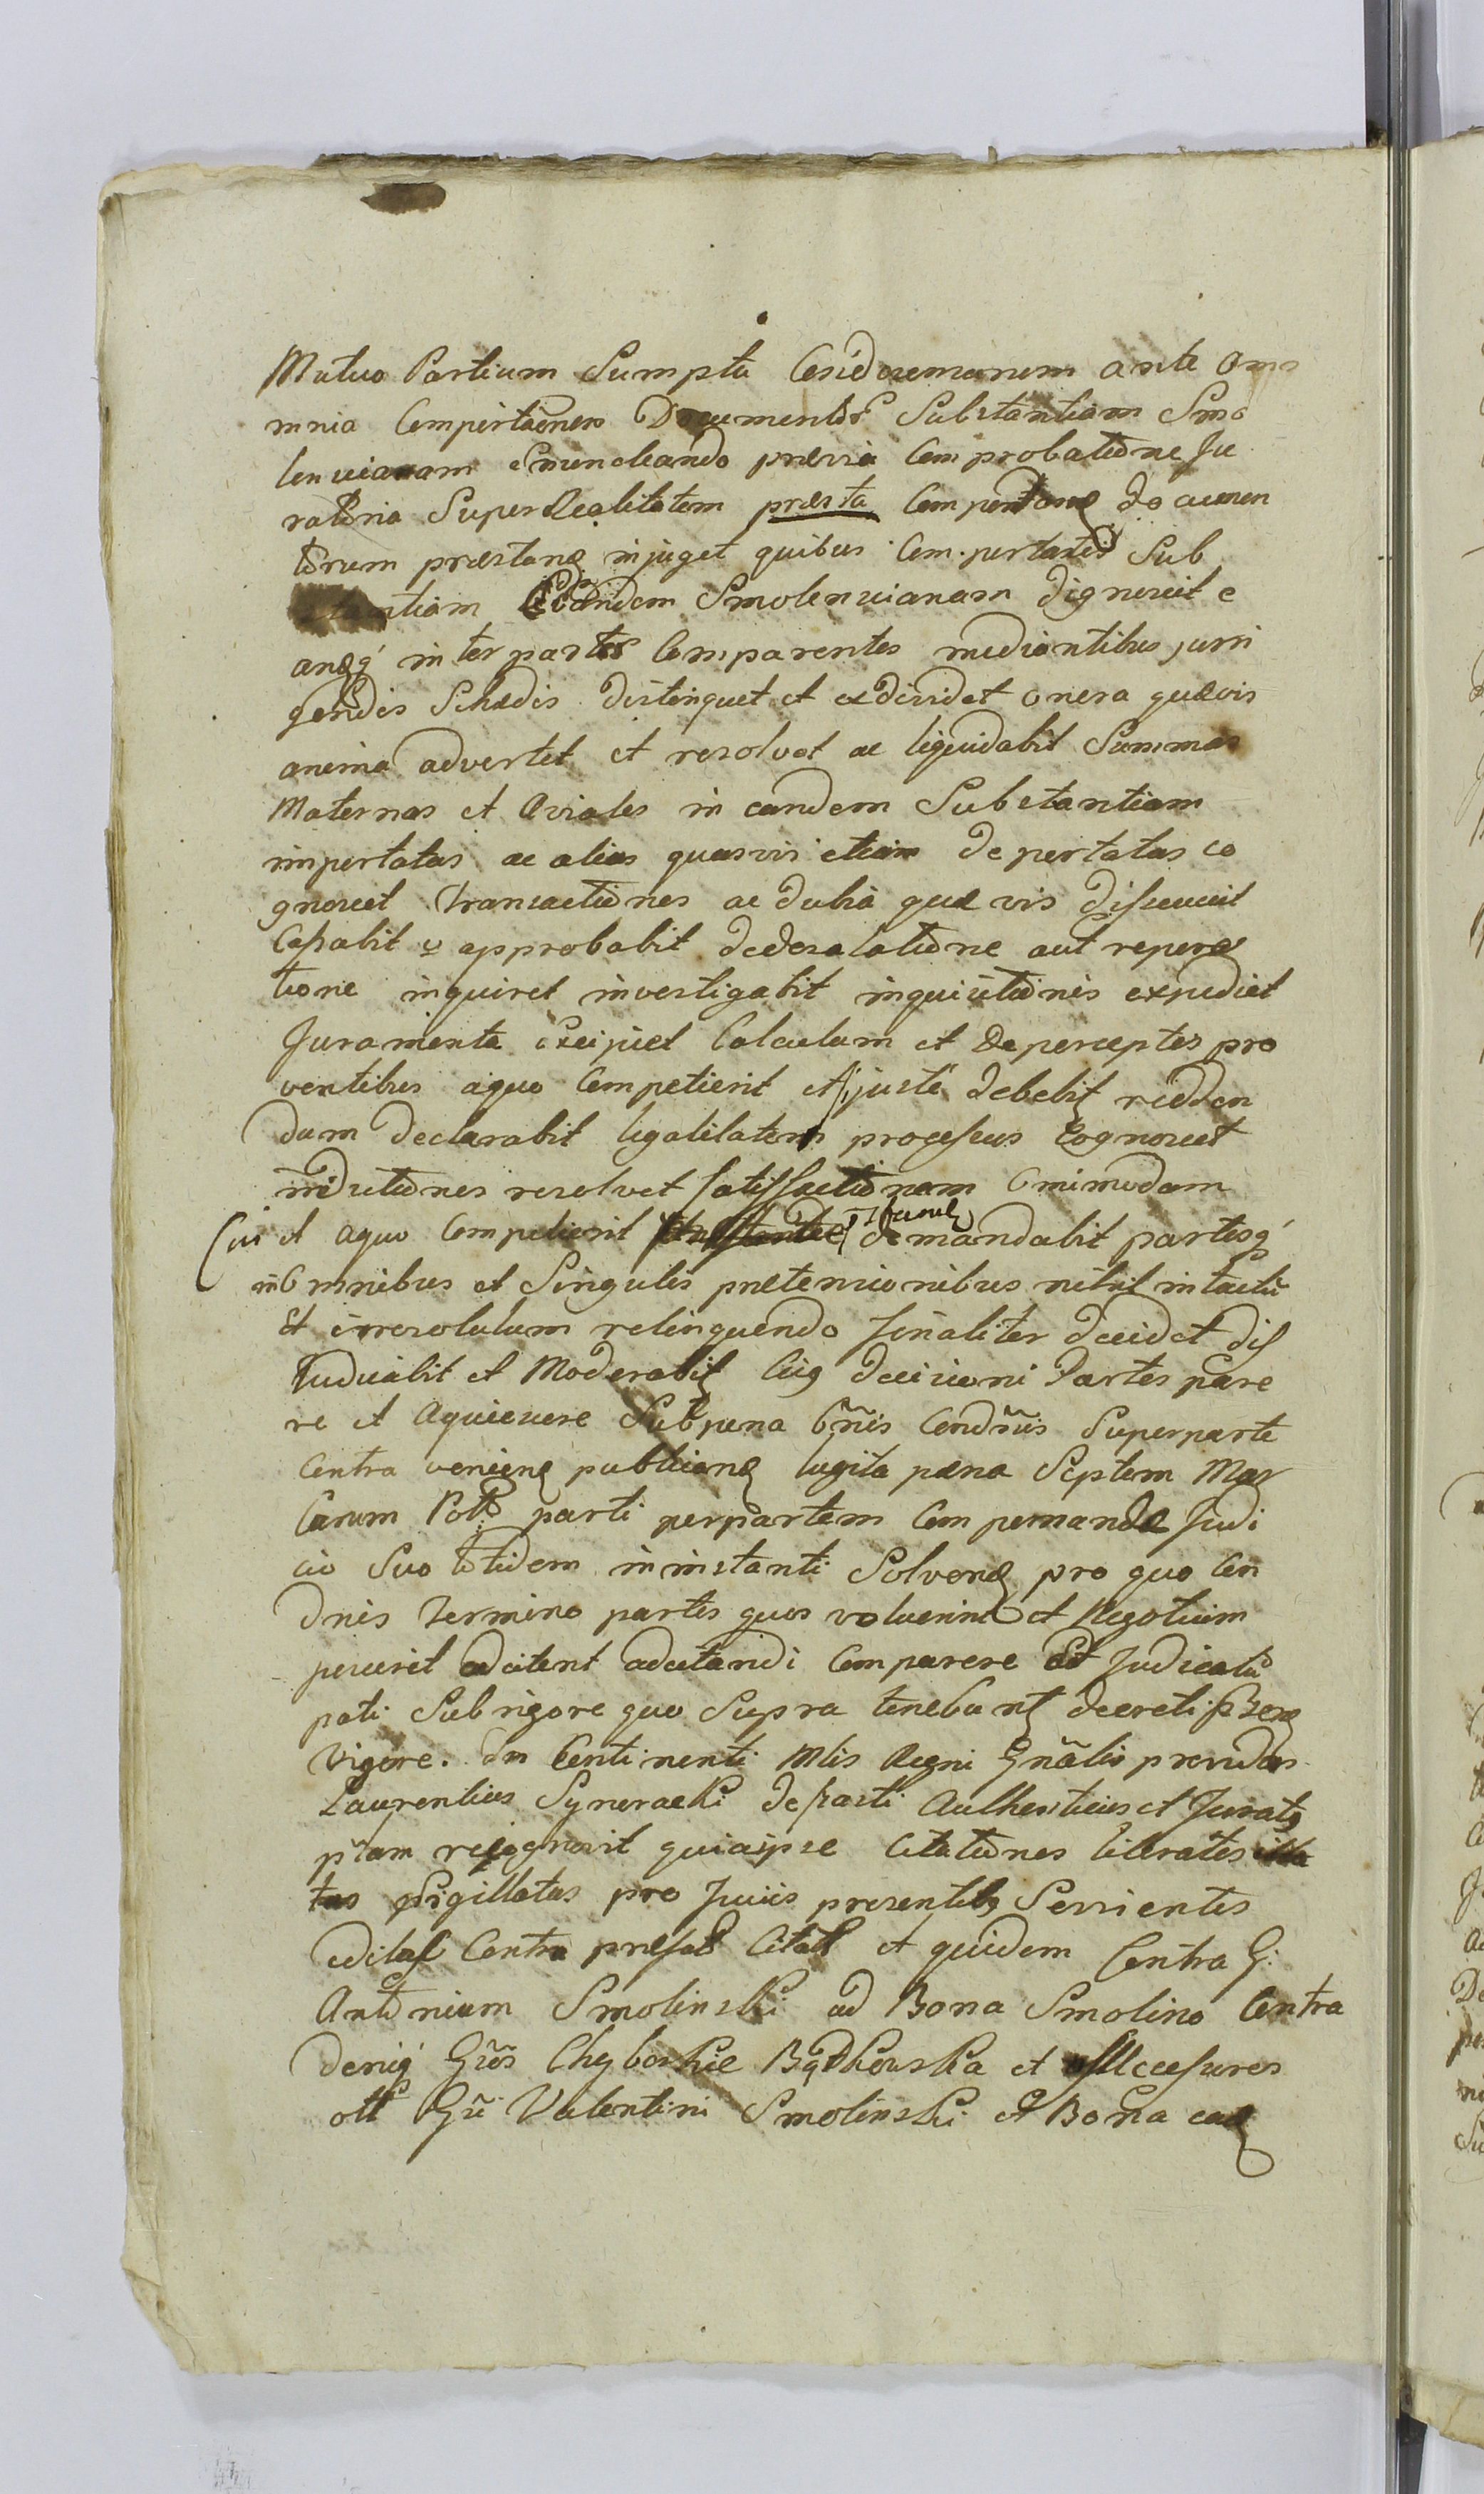 Mutuo Partium Sumptu Condescensionem ante om
mnia Comportationem Documentor Substantiam Smo
lenscianam enuncleando prævia Comprobatione Ju
ratoria Super Realitatem præsta Comportan docu men
torum præstan injuget quibus Comportatis Sub
stantiam Eandem Smolenscianam dignoscet e
anqz inter partes Comparentes mediantibus jurri
gendis Schedis distinguet et exdividet onera quævis
animadvertet et resolvet ac liquidabit Summas
Maternas et Aviales in eandem Substantiam
importatas ac alias quasvis etiam deportatas co
gnoscet transactiones ac dubia quæ vis discutiet
Cassabit approbabit de desolatione aut repera
tione inquiret investigabit inquisitiones expediet
Juramenta Excipiet Calculum et de perceptis pro
ventibus a quo Competierit et juste debebit redden
dum declarabit legalitatem processus Cognoscet
inductiones resolvet satisfactionem Omimodam
Cui et a quo Competierit demandabit partesq
in Omnibus et Singulis prætensionibus nihil intactū
Et irresolutum relinquendo finaliter decidet dis
judicabit et Moderabit Cujus decisioni Partes pare
re et Aquiescere Sub pena Bñis Condñis Super parte
Contra venien publican lugita pæna Septem Mar
Carum Pol parti per partem Com pensandæ Judi
cio Suo totidem in instanti Solven pro quo Con
dnis termino partes quos voluerint et Negotium
posceret adcitent adcitandi Comparere Et Judicatū
pati Sub rigore quo Supra tenebunt decreti pnsen
vigore. In Continenti Mlis Regni Gnalis providus
Laurentius Synoracki de parti Authenticus et Jurat
ptam recognovit quia ipse Citationes literates
tas Sigillatas pro Juiis presentib Servientes
editas Contra præfat Citat et quidem Contra G:
Antonium Smolinski ad Bona Smolino Contra
deniq Gros Chyboskie Bądkowska et Successores
olt Gñi Valentini Smolinski et Bona ead